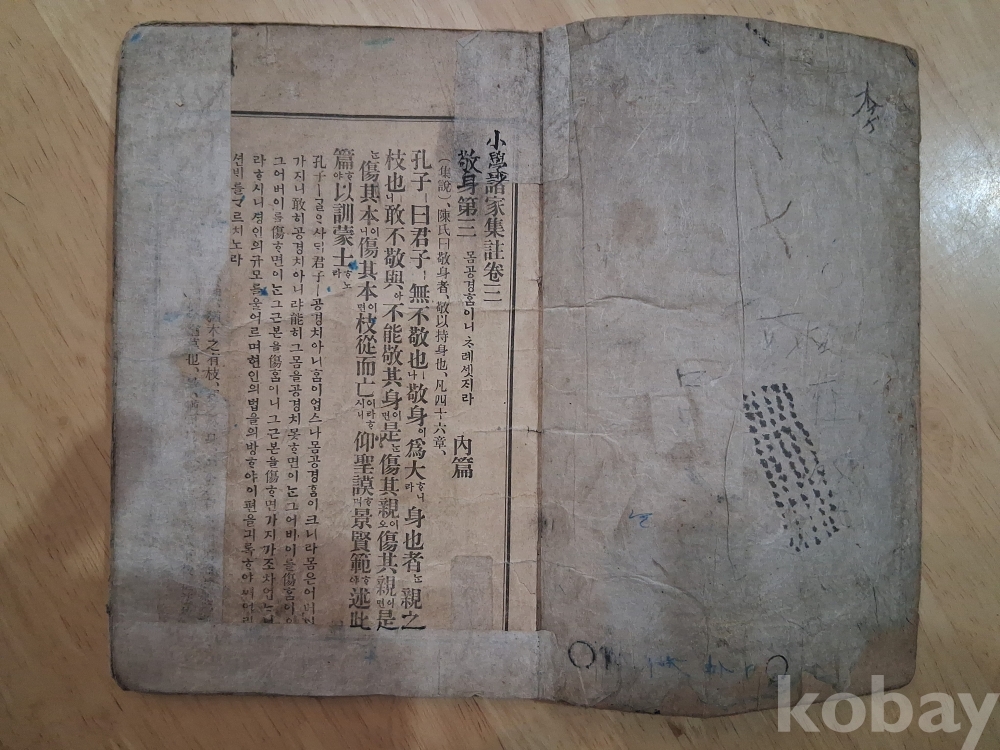 小學諸家集註卷三
敬身第三 몸공경홈이니 ᄎᆞ례셋ᄌᆡ라 內篇
(集說)、陳氏曰敬身者、敬以持身也、凡四十六章、
孔子ㅣ曰君子ㅣ無不敬也ㅣ나敬身이爲大ᄒᆞ니라身也者ᄂᆞᆫ親之
枝也ㅣ니敢不敬與아不能敬其身이면是ᄂᆞᆫ傷其親이오傷其親이면是
ᄂᆞᆫ傷其本이니傷其本이면枝從而亡이라ᄒᆞ시니仰聖謨ᄒᆞ며景賢範ᄒᆞ야述此
篇ᄒᆞ야以訓蒙士ᄒᆞ노라
孔子ㅣ ᄀᆞᆯᄋᆞ샤ᄃᆡ君子ㅣ공경치아니홈이업스나몸공경홈이크니라몸은어버이
가지니敢히공경치아니랴能히그몸을공경치못ᄒᆞ면이ᄂᆞᆫ그어버이를傷홈이
그어버이를傷ᄒᆞ면이ᄂᆞᆫ그근본을傷홈이니그근본을傷ᄒᆞ면가지가조차업ᄂᆞ니
라ᄒᆞ시니셩인의규모를울어르며현인의법을의방ᄒᆞ야이편을긔록ᄒᆞ야ᄡᅥ어린
션ᄇᆡ를ᄀᆞᄅᆞ치노라
木之有枝、
kobay